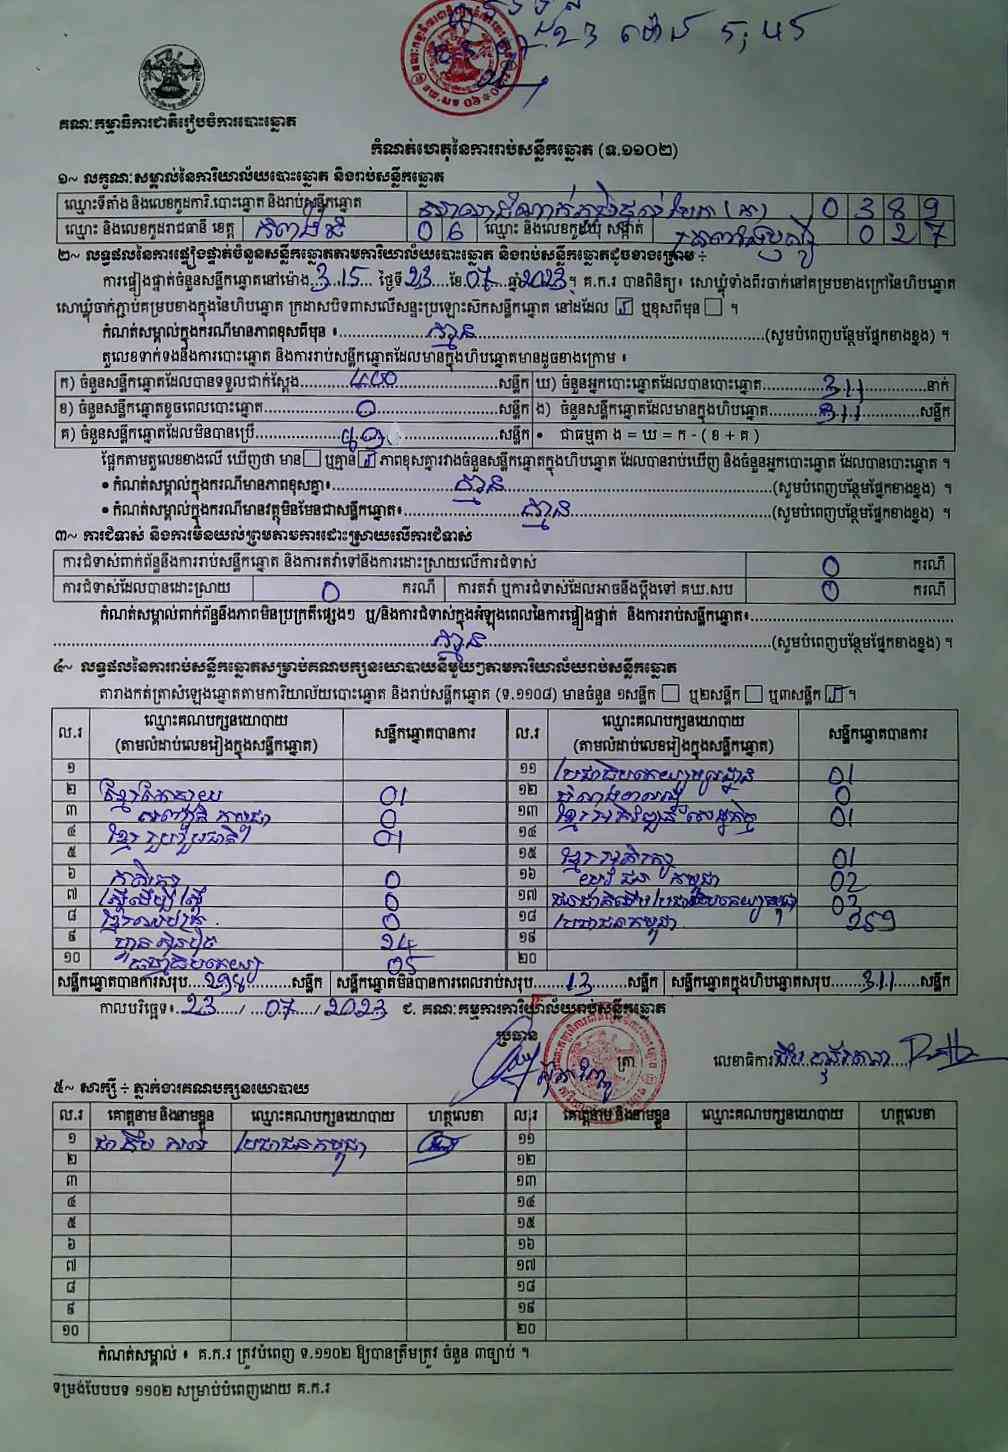 គណៈកម្មាធិការជាតិរៀបចំការបោះឆ្នោត
កំណត់ហេតុនៃការរាប់សន្លឹកឆ្នោត (ទ.១១០២)
១~ លក្ខណៈសម្គាល់នៃការិយាល័យបោះឆ្នោត និងរាប់សន្លឹកឆ្នោត
ឈ្មោះទីតាំង និងលេខកូដការិ.បោះឆ្នោត និងរាប់សន្លឹកឆ្នោត 0 3 8 9
ឈ្មោះ និងលេខកូដរាជធានី ខេត្ត កំពង់ធំ 0 6 ឈ្មោះ និងលេខកូដឃុំ សង្កាត់ 0 2 7
២~ លទ្ធផលនៃការផ្ទៀងផ្ទាត់ចំនួនសន្លឹកឆ្នោតតាមការិយាល័យបោះឆ្នោត និងរាប់សន្លឹកឆ្នោតដូចខាងក្រោម ÷
ការផ្ទៀងផ្ទាត់ចំនួនសន្លឹកឆ្នោតនៅម៉ោង 3.15 ថ្ងៃទី 23 ខែ 07 ឆ្នាំ 2023 ។ គ.ក.រ បានពិនិត្យ៖ សោឃ្លុំទាំងពីរចាក់នៅគម្របខាងក្រៅនៃហិបឆ្នោត
សោឃ្លុំចាក់ភ្ជាប់គម្របខាងក្នុងនៃហិបឆ្នោត ក្រដាសបិទពាសលើសន្ទះប្រឡោះស៊កសន្លឹកឆ្នោត នៅដដែល ☑ ឬខុសពីមុន ☐ ។
កំណត់សម្គាល់ក្នុងករណីមានភាពខុសពីមុន ៖ គ្មាន (សូមបំពេញបន្ថែមផ្នែកខាងខ្នង) ។
តួលេខទាក់ទងនឹងការបោះឆ្នោត និងការរាប់សន្លឹកឆ្នោតដែលមានក្នុងហិបឆ្នោតមានដូចខាងក្រោម ៖
ក) ចំនួនសន្លឹកឆ្នោតដែលបានទទួលជាក់ស្តែង 400 សន្លឹក ឃ) ចំនួនអ្នកបោះឆ្នោតដែលបានបោះឆ្នោត 311 នាក់
ខ) ចំនួនសន្លឹកឆ្នោតខូចពេលបោះឆ្នោត 0 សន្លឹក ង) ចំនួនសន្លឹកឆ្នោតដែលមានក្នុងហិបឆ្នោត 311 សន្លឹក
គ) ចំនួនសន្លឹកឆ្នោតដែលមិនបានប្រើ សន្លឹក • ជាធម្មតា ង = ឃ = ក - ( ខ + គ )
ផ្អែកតាមតួលេខខាងលើ ឃើញថា មាន ☐ ឬគ្មាន ☑ ភាពខុសគ្នារវាងចំនួនសន្លឹកឆ្នោតក្នុងហិបឆ្នោត ដែលបានរាប់ឃើញ និងចំនួនអ្នកបោះឆ្នោត ដែលបានបោះឆ្នោត ។
• កំណត់សម្គាល់ក្នុងករណីមានភាពខុសគ្នា៖ គ្មាន (សូមបំពេញបន្ថែមផ្នែកខាងខ្នង) ។
• កំណត់សម្គាល់ក្នុងករណីមានវត្ថុមិនមែនជាសន្លឹកឆ្នោត៖ គ្មាន (សូមបំពេញបន្ថែមផ្នែកខាងខ្នង) ។
៣~ ការជំទាស់ និងការមិនយល់ព្រមតាមការដោះស្រាយលើការជំទាស់
ការជំទាស់ពាក់ព័ន្ធនឹងការរាប់សន្លឹកឆ្នោត និងការតវ៉ាទៅនឹងការដោះស្រាយលើការជំទាស់ 0 ករណី
ការជំទាស់ដែលបានដោះស្រាយ 0 ករណី ការតវ៉ា ឬការជំទាស់ដែលអាចនឹងប្តឹងទៅ គឃ.សប 0 ករណី
កំណត់សម្គាល់ពាក់ព័ន្ធនឹងភាពមិនប្រក្រតីផ្សេងៗ ឬ/និងការជំទាស់ក្នុងអំឡុងពេលនៃការផ្ទៀងផ្ទាត់ និងការរាប់សន្លឹកឆ្នោត៖
គ្មាន (សូមបំពេញបន្ថែមផ្នែកខាងខ្នង) ។
៤~ លទ្ធផលនៃការរាប់សន្លឹកឆ្នោតសម្រាប់គណបក្សនយោបាយនីមួយៗតាមការិយាល័យរាប់សន្លឹកឆ្នោត
តារាងកត់ត្រាសំឡេងឆ្នោតតាមការិយាល័យបោះឆ្នោត និងរាប់សន្លឹកឆ្នោត (ទ.១១០៨) មានចំនួន ១សន្លឹក ☐ ឬ២សន្លឹក ☐ ឬ៣សន្លឹក ☑ ។
ល.រ ឈ្មោះគណបក្សនយោបាយ (តាមលំដាប់លេខរៀងក្នុងសន្លឹកឆ្នោត) សន្លឹកឆ្នោតបានការ ល.រ ឈ្មោះគណបក្សនយោបាយ (តាមលំដាប់លេខរៀងក្នុងសន្លឹកឆ្នោត) សន្លឹកឆ្នោតបានការ
១ ១១ ប្រជាធិបតេយ្យមូលដ្ឋាន 01
២ ខ្មែរតែមួយ 01 ១២ 0
៣ កម្ពុជា 0 ១៣ ខ្មែរអភិវឌ្ឍន៍សេដ្ឋកិច្ច 01
៤ ខ្មែររួបរួមជាតិ 01 ១៤
៥ ១៥ ខ្មែរអភិរក្ស 01
៦ 0 ១៦ យុវជនកម្ពុជា 02
៧ ស្ត្រីដើម្បីស្ត្រី 0 ១៧ ជនជាតិដើមប្រជាធិបតេយ្យកម្ពុជា 02
៨ 0 ១៨ ប្រជាជនកម្ពុជា 259
៩ ហ្វ៊ុនស៊ិនប៉ិច 24 ១៩
១០ ធម្មាធិបតេយ្យ 05 ២០
សន្លឹកឆ្នោតបានការសរុប 298 សន្លឹក សន្លឹកឆ្នោតមិនបានការពេលរាប់សរុប 13 សន្លឹក សន្លឹកឆ្នោតក្នុងហិបឆ្នោតសរុប 311 សន្លឹក
កាលបរិច្ឆេទ៖ 23 / 07 / 2023 ជ. គណៈកម្មការការិយាល័យរាប់សន្លឹកឆ្នោត
ប្រធាន
ត្រា លេខាធិការ
៥~ សាក្សី ÷ ភ្នាក់ងារគណបក្សនយោបាយ
ល.រ គោត្តនាម និងនាមខ្លួន ឈ្មោះគណបក្សនយោបាយ ហត្ថលេខា ល.រ គោត្តនាម និងនាមខ្លួន ឈ្មោះគណបក្សនយោបាយ ហត្ថលេខា
១ ប្រជាជនកម្ពុជា ១១
២ ១២
៣ ១៣
៤ ១៤
៥ ១៥
៦ ១៦
៧ ១៧
៨ ១៨
៩ ១៩
១០ ២០
កំណត់សម្គាល់ ៖ គ.ក.រ ត្រូវបំពេញ ទ.១១០២ ឱ្យបានត្រឹមត្រូវ ចំនួន ៣ច្បាប់ ។
ទម្រង់បែបបទ ១១០២ សម្រាប់បំពេញដោយ គ.ក.រ